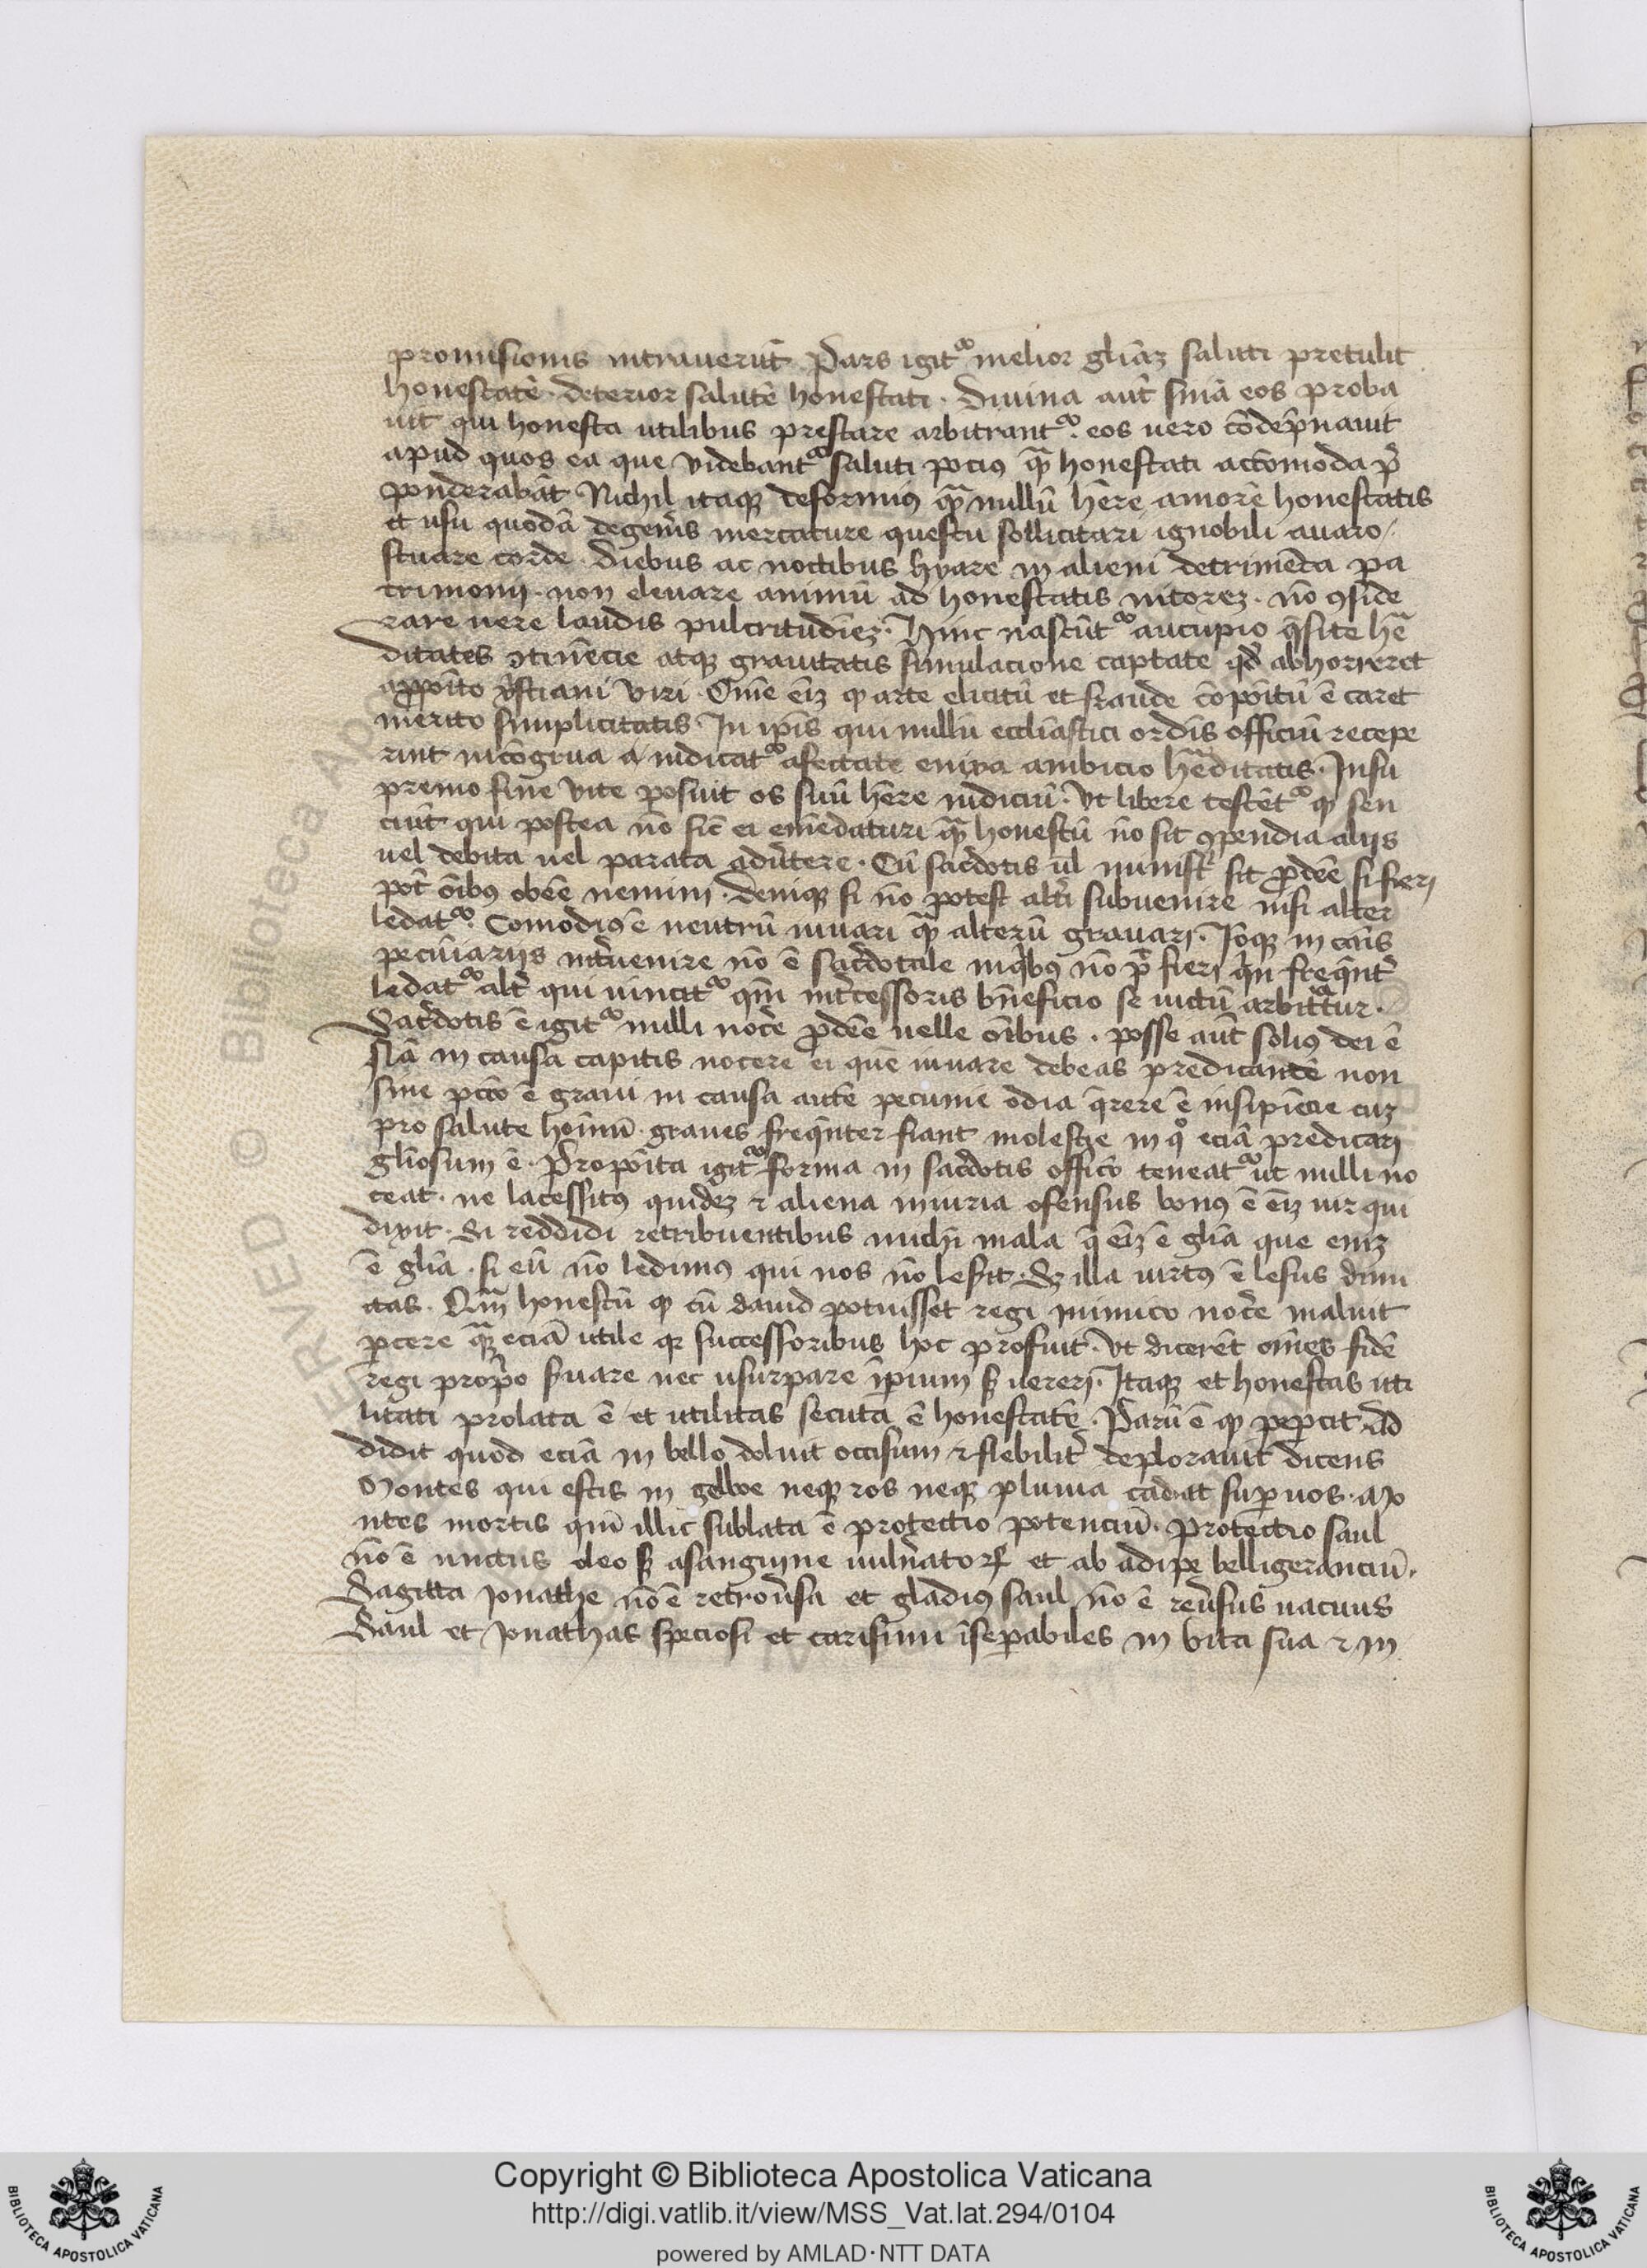 promisionis intraueru̅t Pars igit᷑ melior gl̅iaꝫ saluti pretulit
honestate̅ · deterior salute̅ honestati · Diuina aut̅ sn̅ia eos proba
uit qui honesta utilibus prestare arbitrant᷑ · eos uero co̅de̅pnauit
apud quos ea que videbant᷑ saluti pociꝰ qᷓ honestati accomoda p̅
ponderaba̅t Nichil itaqꝫ deformiꝰ qᷓ nullu̅ he̅re amore̅ honestatis
et usu quoda̅ degen̅is mercature questu sollicitari ignobili auaro
stuare corde · diebus ac noctibus hyare in alieni detrime̅ta pa
trimonij · non eleuare animu̅ ad honestatis nitoreꝫ · no̅ ꝯside
rare uere laudis pulcritudineꝫ · Hinc nascu̅t᷑ aucupio q̅site he̅
ditates ꝯtine̅cie atqꝫ grauitatis simulacione captate qd̅ abhorreret
a ꝓpo̅ito xp̅stiani viri · Om̅e e̅iꝫ ꝙ arte elicitu̅ et fraude co̅po̅itu̅ e̅ caret
merito simplicitatis · In ip̅is qui nullu̅ eccl̅iastici ordi̅s officiu̅ recepe
rint inco̅grua iudicat᷑ afectate enixa ambicio he̅ditatis · In su
premo fine vite posuit os suu̅ he̅re iudiciu̅ · Vt libere teste̅t᷑ ꝙ sen
ciu̅t qui postea no̅ sic̅ ei eme̅daturi qᷓ honestu̅ no̅ sit ꝯpendia alijs
uel debita uel parata adu̅tere · Cu̅ sac̅dotis ul̅ minist̅ sit ꝓde̅e si fieri
pot̅ o̅ibꝰ obe̅e nemini · Deniqꝫ si no̅ potest alt̅i subuenire nisi alter
ledat᷑ · Comodiꝰ e̅ neutru̅ iuuari qᷓ alteru̅ grauari · Io̅qꝫ in ca̅is
pecu̅iariis int̅uenire no̅ e̅ sac̅dotale in qͥbꝰ no̅ p̅ fieri qͥn freq̅nt̅
ledat᷑ alt̅ qui uincit᷑ qm̅ int̅cessoris bn̅eficio se uictu̅ arbitratur ·
Sac̅dotis e̅ igit᷑ nulli noc̅e ꝓde̅e uelle o̅ibus · posse aut̅ soliꝰ dei e̅
Na̅ in causa capitis nocere ei que̅ iuuare debeas predicande̅ non
sine pcc̅o e̅ graui in causa aute̅ pecunie odia q̅rere e̅ insipie̅cie cuꝫ
pro salute ho̅inu̅ · graues freq̅nter fiant molestie in qͦ ecia̅ predicari
gl̅iosum e̅ · Propo̅ita igit᷑ forma in sac̅dotis offic̅o teneat᷑ ut nulli no
ceat · ne lacessitꝰ quideꝫ ⁊ aliena iniuria ofensus bonꝰ e̅ e̅iꝫ uir qui
dixit · Si reddidi retribuentibus michi mala q̅ e̅iꝫ e̅ gl̅ia que enīꝫ
e̅ gl̅ia · si eu̅ no̅ ledimꝰ qui nos no̅ lesit · Sꝫ illa uirtꝰ e̅ lesus dimi
ttas · Qᷓ honestu̅ ꝙ cu̅ dauid potuisset regi inimico noc̅e maluit
ꝑcere qᷓ ecia̅ utile qꝛ successoribus hoc profuit · Vt dicere̅t om̅es fide̅
regi prop̅o s̅uare nec usurpare i̅perium sꝫ uereri · Itaqꝫ et honestas uti
litati prolata e̅ et utilitas secuta e̅ honestate̅ · Paru̅ e̅ ꝙ peꝑcit Ad
didit quod ecia̅ in bello doluit occisum ⁊ flebilit̅ deplorauit dicens
Montes qui estis in gelboe neqꝫ ros neqꝫ pluuia cadat suꝑ uos · Mo
ntes mortis qm̅ illic sublata e̅ protectio potenciu̅ · Protectio saul
no̅ e̅ unctus oleo sꝫ a sanguine uuln̅atoꝝ et ab adipe belligeranciu̅ ·
Sagitta Jonathe no̅ e̅ retrou̅sa et gladiꝰ saul no̅ e̅ reu̅sus uacuus
Saul et Jonathas speciosi et carissimi i̅seꝑabiles in vita sua ⁊ in
Copyright © Biblioteca Apostolica Vaticana
http://digi.vatlib.it/view/MSS_Vat.lat.294/0104
powered by AMLAD·NTT DATA
BIBLIOTECA APOSTOLICA VATICANA
BIBLIOTECA APOSTOLICA VATICANA